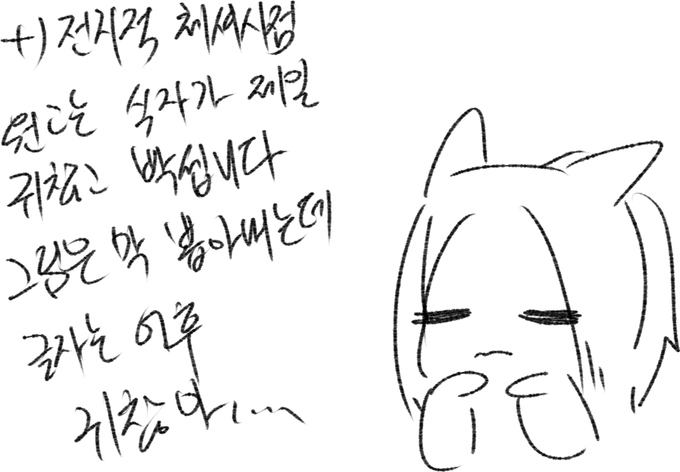 +) 전지적 체셔시점
원고는 식자가 제일
귀찮고 빡셉니다
그림은 막 뽑아버는데
글자는 어후
귀찮아....